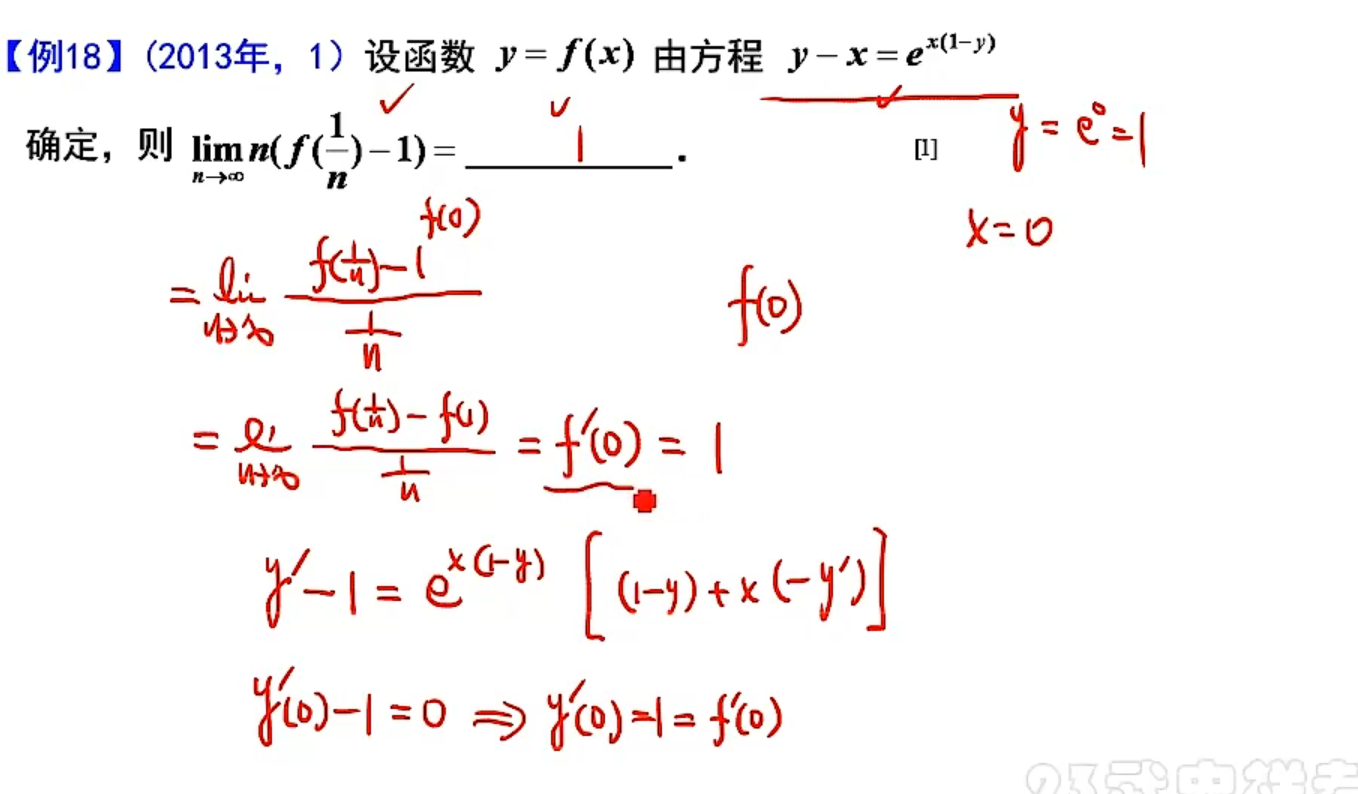 【例18】(2013年，1) 设函数 y = f(x) 由方程 y − x = e^{x(1−y)}
确定，则 lim_{n→∞} n(f(1/n) − 1) = ____1____. [1]
y = e^0 = 1
x = 0
f(0)
= lim_{n→∞} (f(1/n) − 1)/(1/n)
f(0)
= lim_{n→∞} (f(1/n) − f(0))/(1/n) = f′(0) = 1
y′ − 1 = e^{x(1−y)} [(1−y) + x(−y′)]
y′(0) − 1 = 0 ⇒ y′(0) = 1 = f′(0)